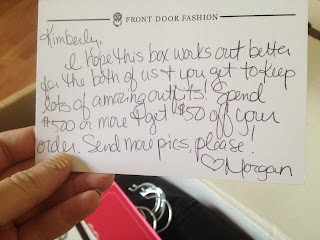 FRONT DOOR FASHION
Kimberly,
I hope this box works out better
for the both of us & you get to keep
lots of amazing outfits! Spend
$500 or more & get $50 off your
order. Send more pics, please!
♡Morgan